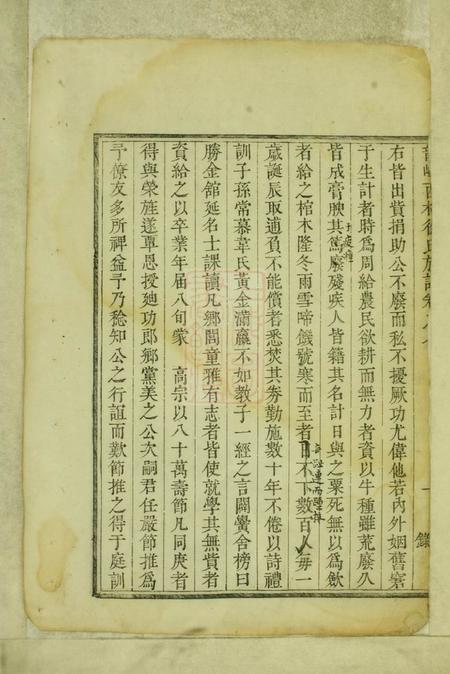 右皆出貲捐助公不廢而私不擾厥功尤偉他若內外姻舊窘
于生計者時為周給農民欲耕而無力者資以牛種雖荒廢久
皆成膏腴其篤廢殘疾人皆籍其名計日與之粟死無以為歛
者給之棺木隆冬雨雪啼饑號寒而至者日不下數百人毋一
歲誕辰取逋負不能償者悉焚其券勤施數十年不倦以詩禮
訓子孫常慕韋氏黃金滿籯不如教子一經之言闢黌舍榜曰
勝金館延名士課讀凡鄉閭童雅有志者皆使就學其無貲者
資給之以卒業年屆八旬蒙 高宗以八十萬壽節凡同庚者
得與榮旌遂覃恩授廸功郎鄉黨美之公次嗣君任嚴節推為
予僚友多所裨益予乃稔知公之行誼而歎節推之得于庭訓